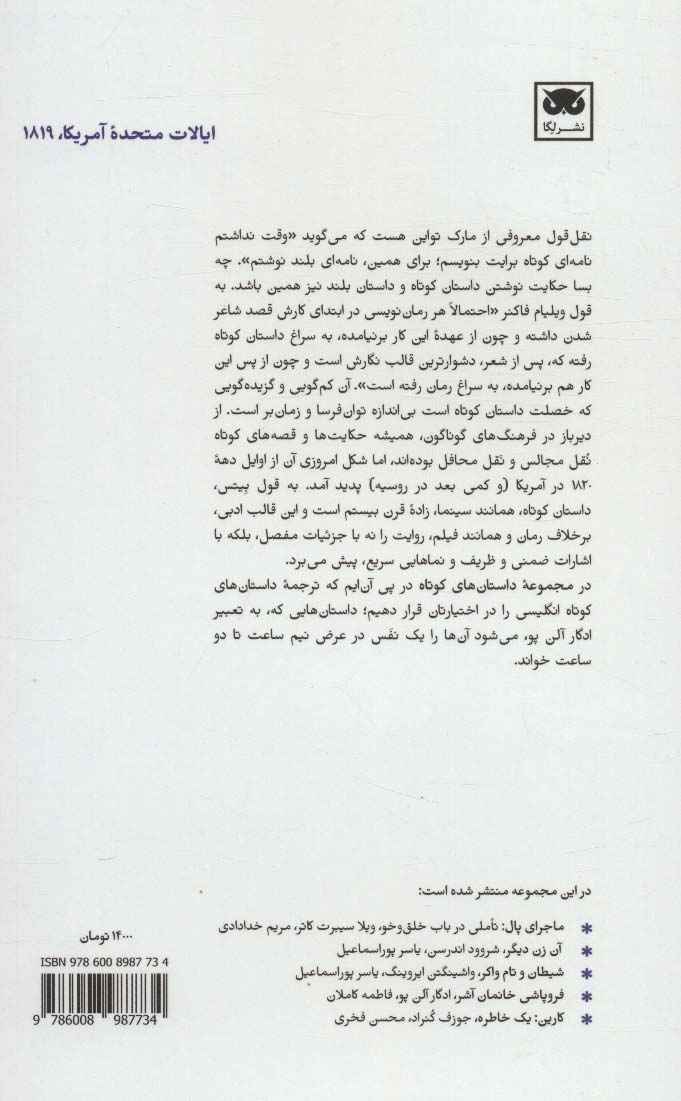 نشر لگا
ایالات متحدهٔ آمریکا، ۱۸۱۹
نقل‌قول معروفی از مارک تواین هست که می‌گوید «وقت نداشتم
نامه‌ای کوتاه برایت بنویسم؛ برای همین، نامه‌ای بلند نوشتم». چه
بسا حکایت نوشتن داستان کوتاه و داستان بلند نیز همین باشد. به
قول ویلیام فاکنر «احتمالاً هر رمان‌نویسی در ابتدای کارش قصد شاعر
شدن داشته و چون از عهدهٔ این کار برنیامده، به سراغ داستان کوتاه
رفته که، پس از شعر، دشوارترین قالب نگارش است و چون از پس این
کار هم برنیامده، به سراغ رمان رفته است». آن کم‌گویی و گزیده‌گویی
که خصلت داستان کوتاه است بی‌اندازه توان‌فرسا و زمان‌بر است. از
دیرباز در فرهنگ‌های گوناگون، همیشه حکایت‌ها و قصه‌های کوتاه
نُقل مجالس و نَقل محافل بوده‌اند، اما شکل امروزی آن از اوایل دههٔ
۱۸۲۰ در آمریکا (و کمی بعد در روسیه) پدید آمد. به قول بِیتس،
داستان کوتاه، همانند سینما، زادهٔ قرن بیستم است و این قالب ادبی،
برخلاف رمان و همانند فیلم، روایت را نه با جزئیات مفصل، بلکه با
اشارات ضمنی و ظریف و نماهایی سریع، پیش می‌برد.
در مجموعهٔ داستان‌های کوتاه در پی آن‌ایم که ترجمهٔ داستان‌های
کوتاه انگلیسی را در اختیارتان قرار دهیم؛ داستان‌هایی که، به تعبیر
ادگار آلن پو، می‌شود آن‌ها را یک نفَس در عرض نیم ساعت تا دو
ساعت خواند.
در این مجموعه منتشر شده است:
* ماجرای پال: تأملی در باب خلق‌وخو، ویلا سیبرت کاتر، مریم خدادادی
* آن زن دیگر، شروود اندرسن، یاسر پوراسماعیل
* شیطان و تام واکر، واشینگتن ایروینگ، یاسر پوراسماعیل
* فروپاشی خانمان آشر، ادگار آلن پو، فاطمه کاملان
* کارین: یک خاطره، جوزف کُنراد، محسن فخری
۱۴۰۰۰ تومان
ISBN 978 600 8987 73 4
9 786008 987734